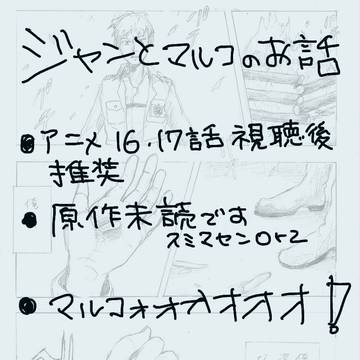 ジャンとマルコのお話
●アニメ16.17話視聴後
推奨
●原作未読です
スミマセンOrz
●マルコォオオオオオ!